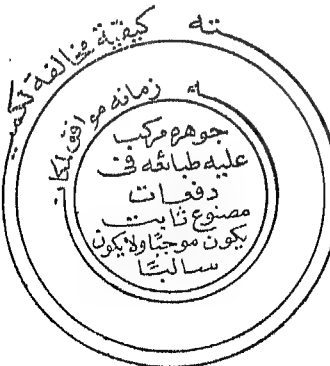 كيفيته مخالفة لكميته
زمانه موافق لمكانه
جوهره مركب
عليه طبائعه في
دفعات
مصنوع ثابت
يكون موجبًا ولا يكون
سالبًا